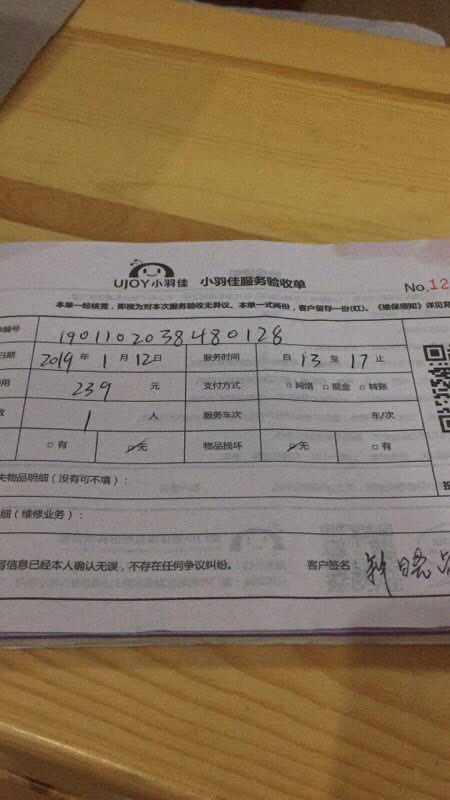 UJOY小羽佳 小羽佳服务验收单
No.12
本单一经核签，即视为对本次服务验收无异议。本单一式两份，客户留存一份(红)。《维保须知》详见
编号 1901102038480128
日期 2019 年 1 月 12 日 服务时间 自 13 至 17 止
用 239 元 支付方式 □网络 □现金 □转账
数 1 人 服务车次 车/次
□有 □无 物品损坏 □无 □有
失物品明细（没有可不填）：
细（维修业务）：
写信息已经本人确认无误，不存在任何争议纠纷。 客户签名：